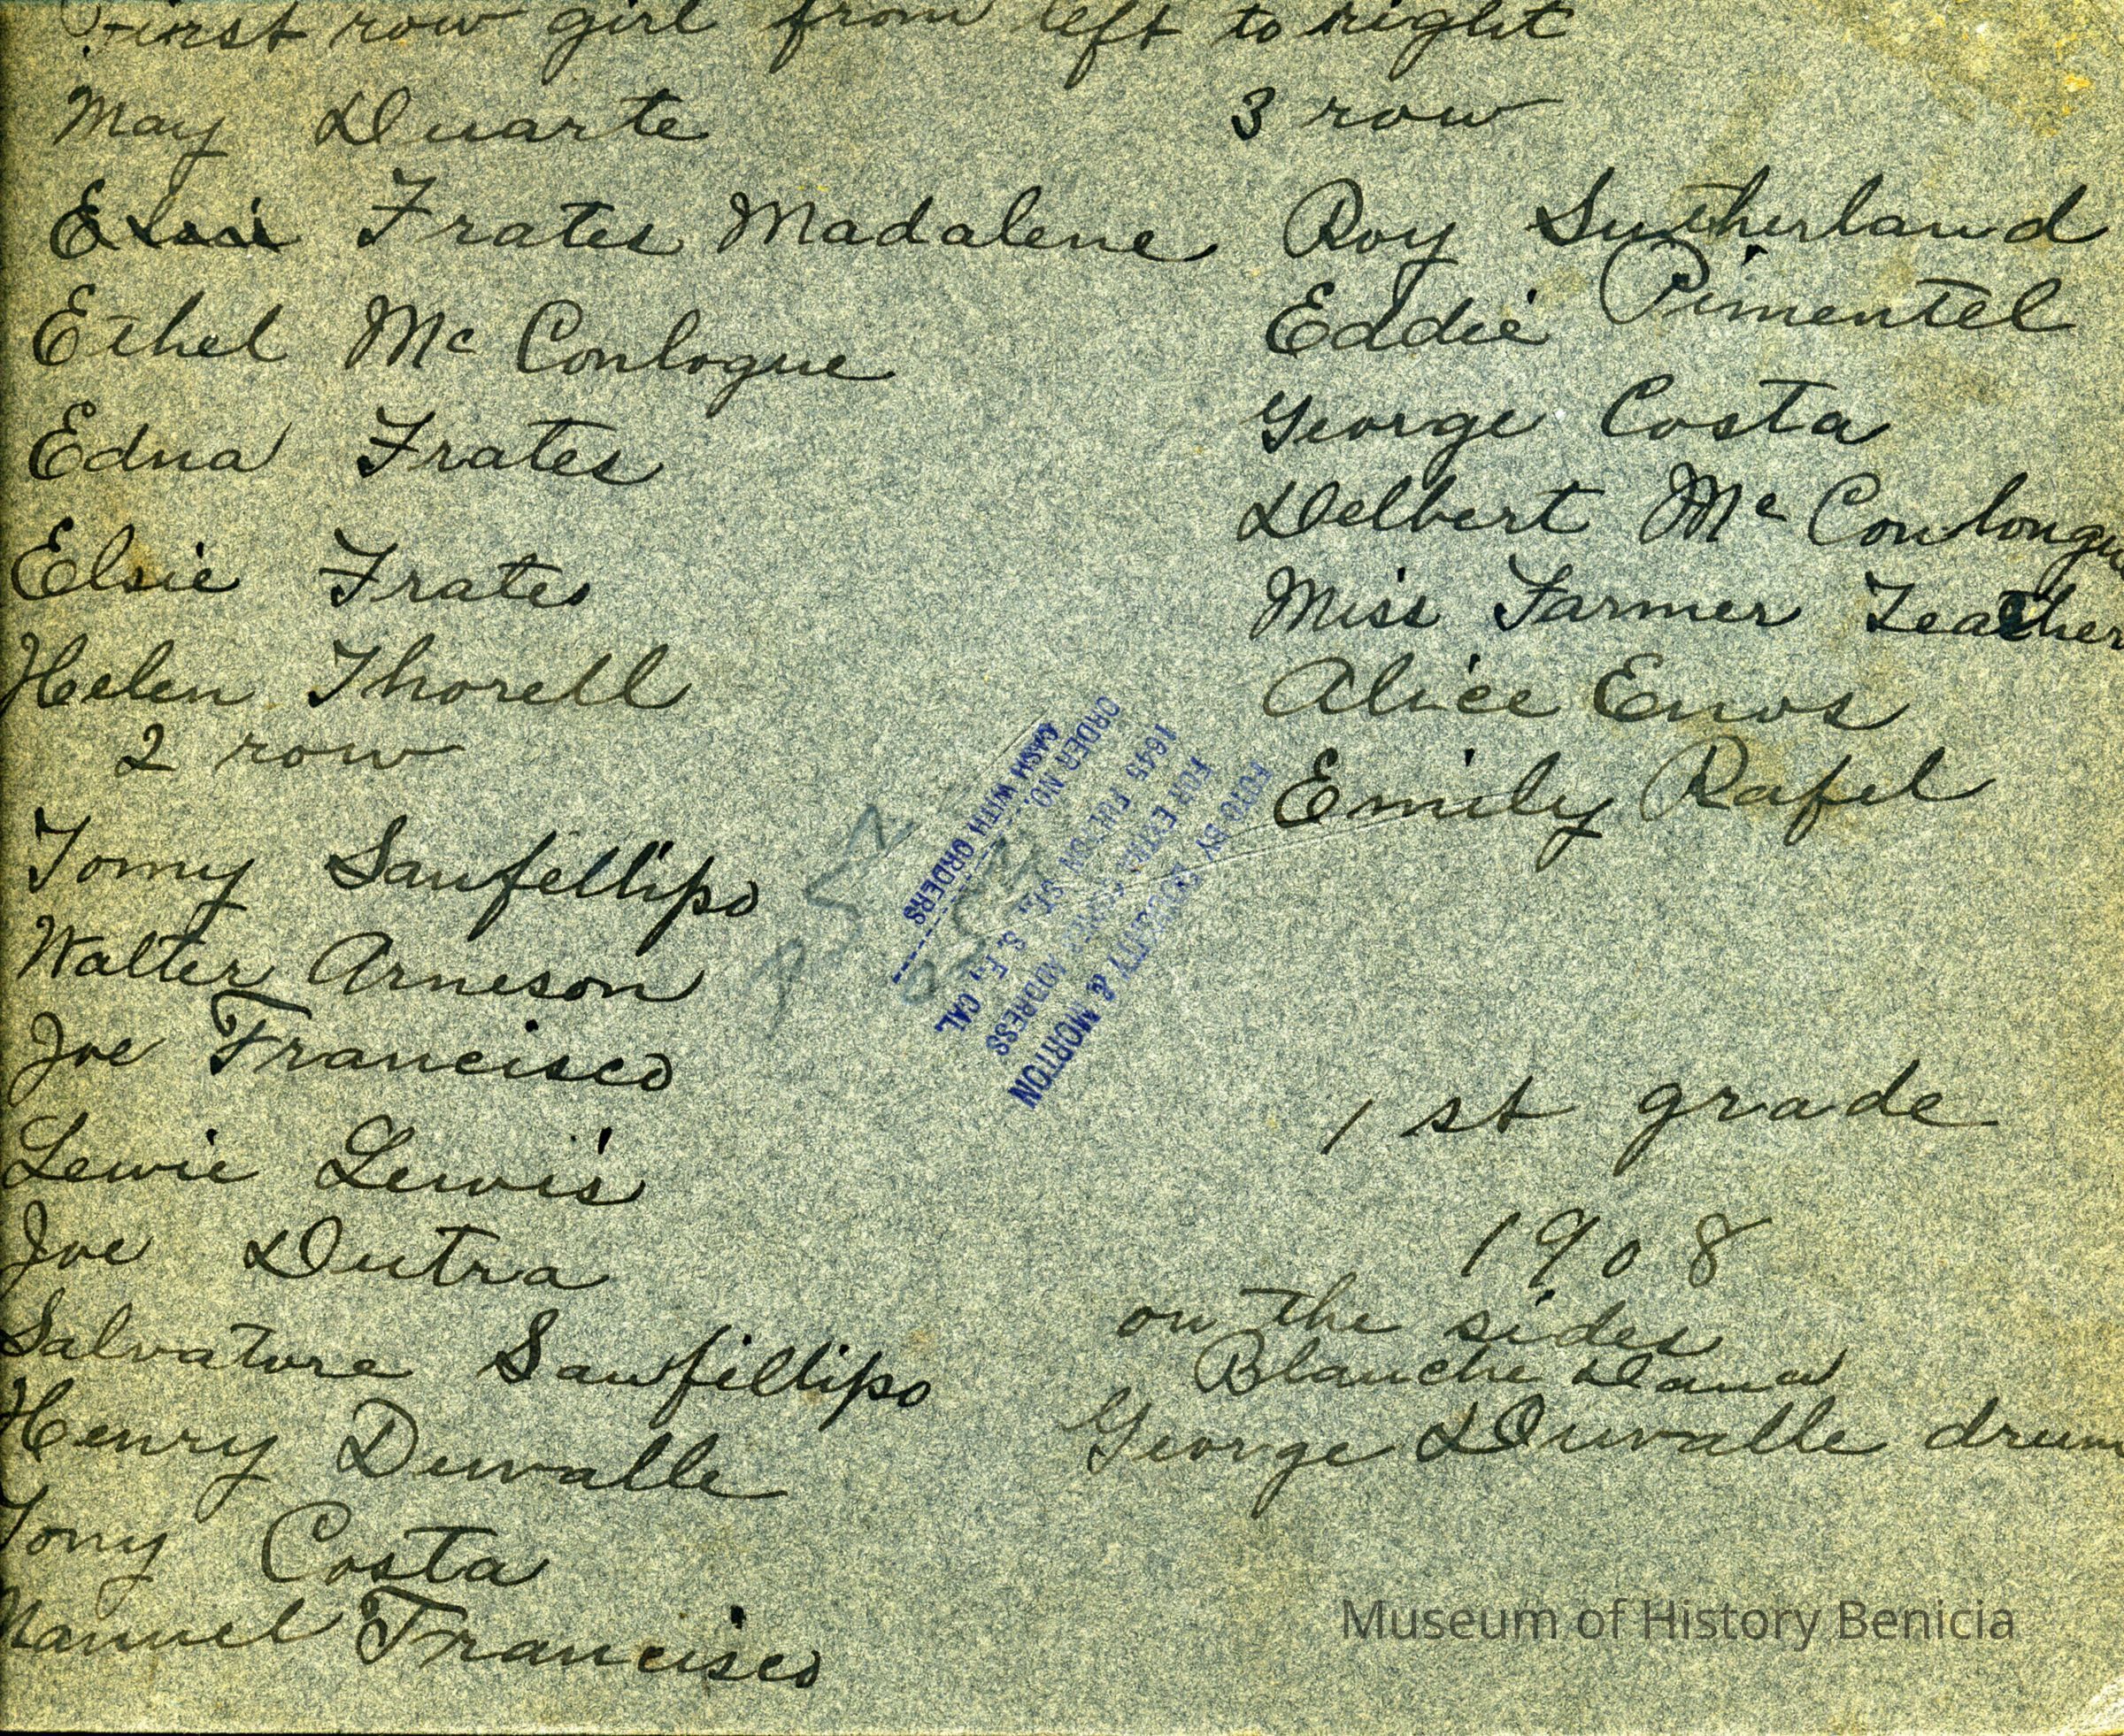 First row girl from left to right
May Duarte
Elsie Frates Madalene
Ethel Mc Conlogue
Edna Frates
Elsie Frates
Helen Thorell
2 row
Tomy Sanfellipo
Walter Arneson
Joe Francisco
Lewie Lewis
Joe Dutra
Salvatore Sanfillipo
Henry Duvalle
Tony Costa
Manuel Francisco
3 row
Roy Sutherland
Eddie Pimentel
George Costa
Delbert Mc Conlongue
Miss Farmer Teacher
Alice Enos
Emily Rafel
FOTO BY & MORTON
FOR EXTRA COPIES ADDRESS
1645 FULTON ST., S. F., CAL.
ORDER NO.
CASH WITH ORDERS
1st grade
1908
on the sides
Blanche Dana
George Duvalle drum
Museum of History Benicia